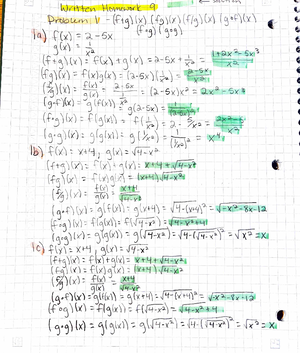 Written Homework 9
Problem 1 - (f+g)(x) (fg)(x) (f/g)(x) (g∘f)(x)
(f∘g) (g∘g)
1a) f(x) = 2-5x
g(x) = 1/x²
(f+g)(x) = f(x) + g(x) = 2-5x + 1/x² = (1+2x²-5x³)/x²
(fg)(x) = f(x)g(x) = (2-5x)(1/x²) = (2-5x)/x²
(f/g)(x) = f(x)/g(x) = (2-5x)/(1/x²) = (2-5x)x² = 2x²-5x³
(g∘f)(x) = g(f(x)) = g(2-5x) = 1/(2-5x)²
(f∘g)(x) = f(g(x)) = f(1/x²) = 2 - 5/x² =
(g∘g)(x) = g(g(x)) = g(1/x²) = 1/(1/x²)² = x⁴
1b) f(x) = x+4, g(x) = √4-x²
(f+g)(x) = f(x) + g(x) = x+4+√4-x²
(fg)(x) = f(x)g(x) = (x+4)√4-x²
(f/g)(x) = f(x)/g(x) = (x+4)/√4-x²
(g∘f)(x) = g(f(x)) = g(x+4) = √4-(x+4)² = √-x²-8x-12
(f∘g)(x) = f(g(x)) = f(√4-x²) = √4-x²+4
(g∘g)(x) = g(g(x)) = g(√4-x²) = √4-(√4-x²)² = √x² = x
1c) f(x) = x+4, g(x) = √4-x²
(f+g)(x) = f(x)+g(x) = x+4+√4-x²
(fg)(x) = f(x)g(x) = (x+4)√4-x²
(f/g)(x) = f(x)/g(x) = (x+4)/√4-x²
(g∘f)(x) = g(f(x)) = g(x+4) = √4-(x+4)² = √-x²-8x-12
(f∘g)(x) = f(g(x)) = f(√4-x²) = √4-x²+4
(g∘g)(x) = g(g(x)) = g(√4-x²) = √4-(√4-x²)² = √x² = x